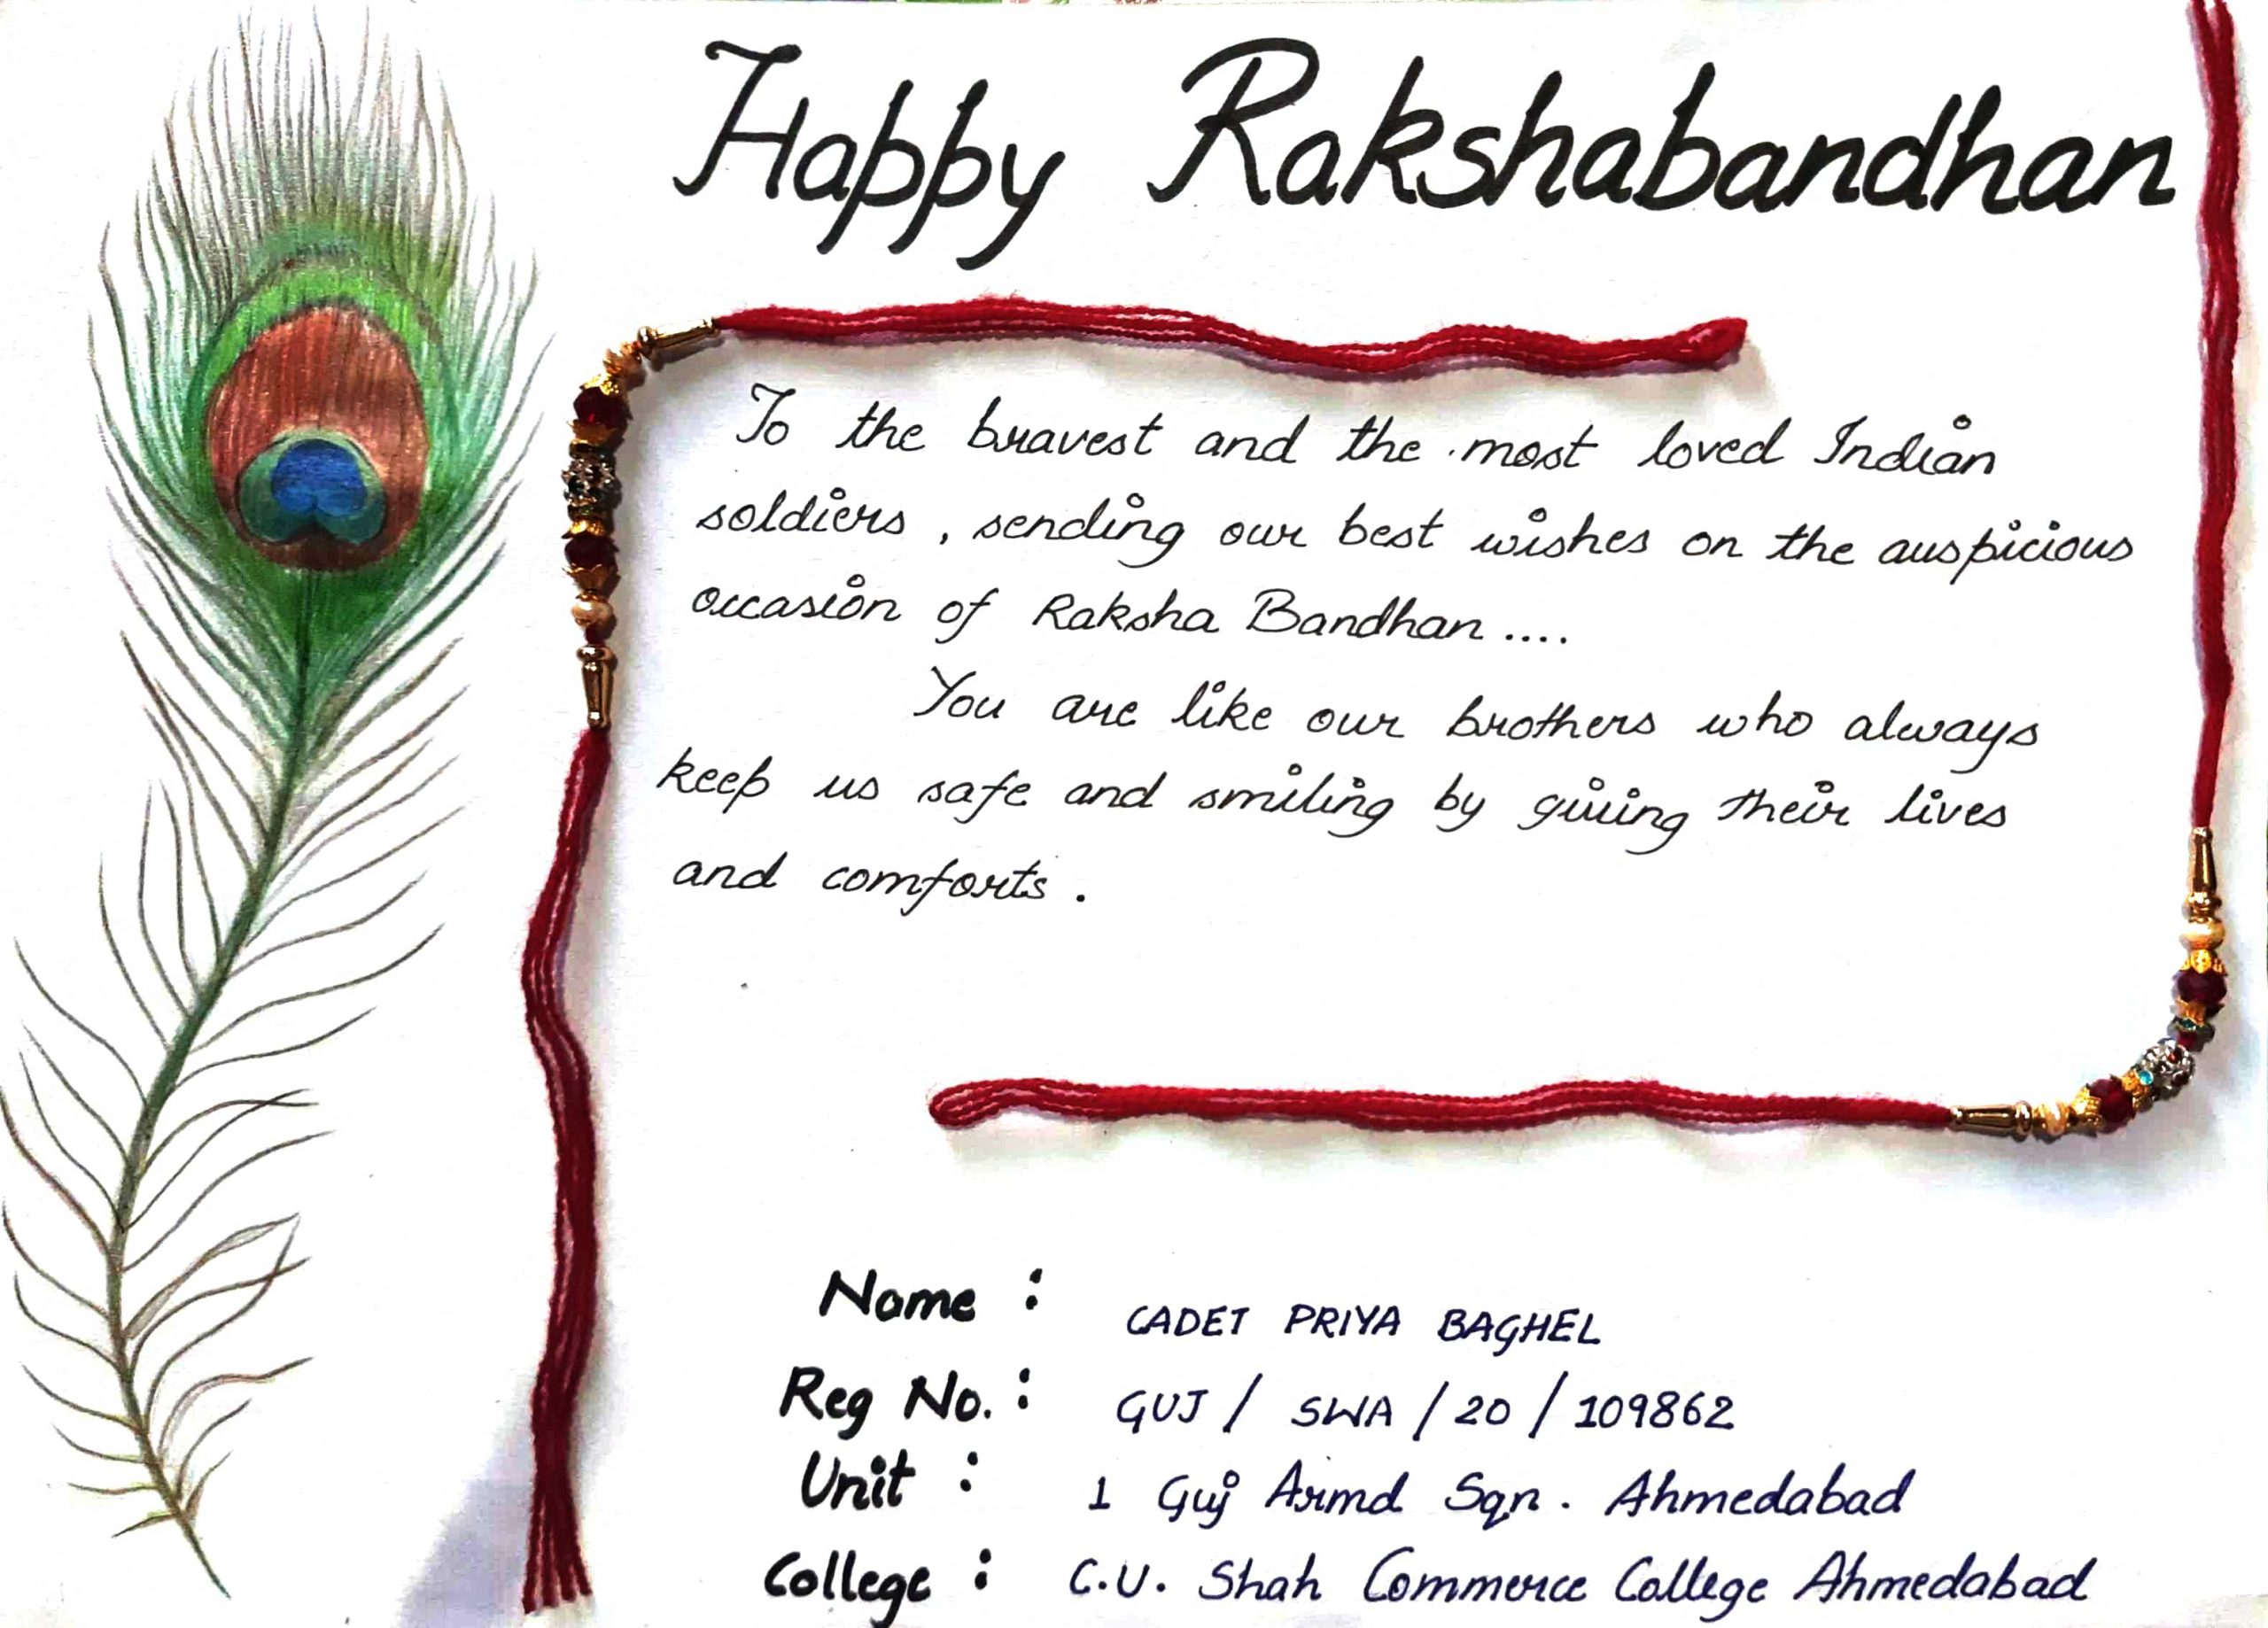 Happy Rakshabandhan
To the bravest and the most loved Indian
soldiers, sending our best wishes on the auspicious
occasion of Raksha Bandhan....
You are like our brothers who always
keep us safe and smiling by giving their lives
and comforts.
Name : CADET PRIYA BAGHEL
Reg No. : GUJ / SWA / 20 / 109862
Unit : 1 Guj Armd Sqn. Ahmedabad
College : C.U. Shah Commerce College Ahmedabad